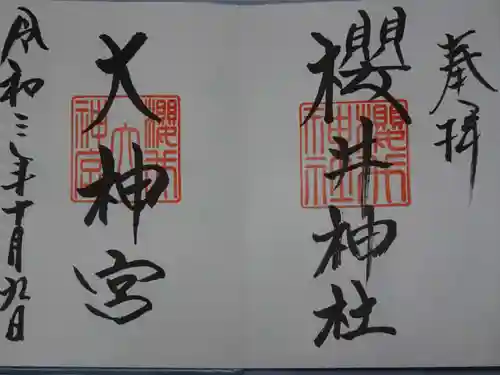 奉拝
櫻井神社
櫻井
神社
大神宮
櫻井
大
神宮
令和三年十月九日